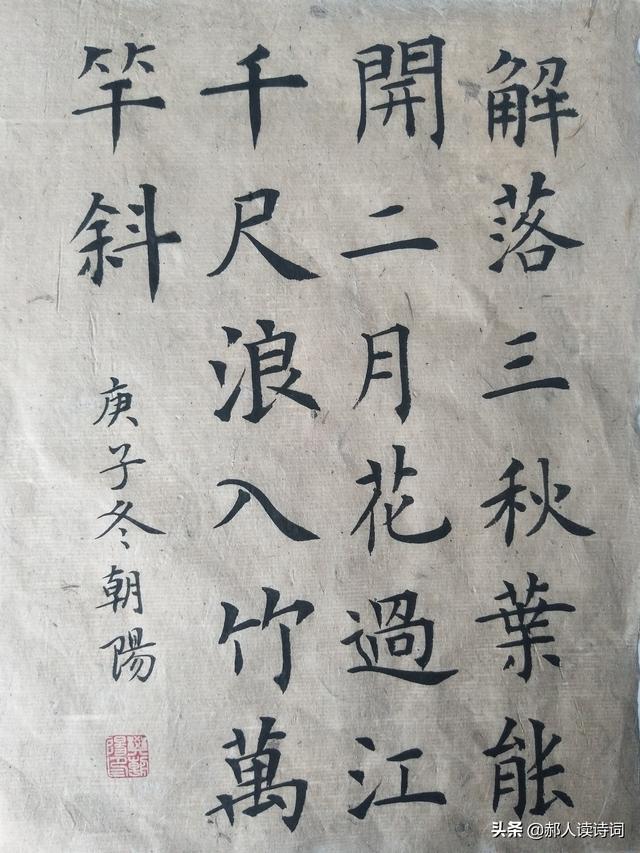 解落三秋葉能
開二月花過江
千尺浪入竹萬
竿斜
庚子冬朝陽
头条 @郝人读诗词